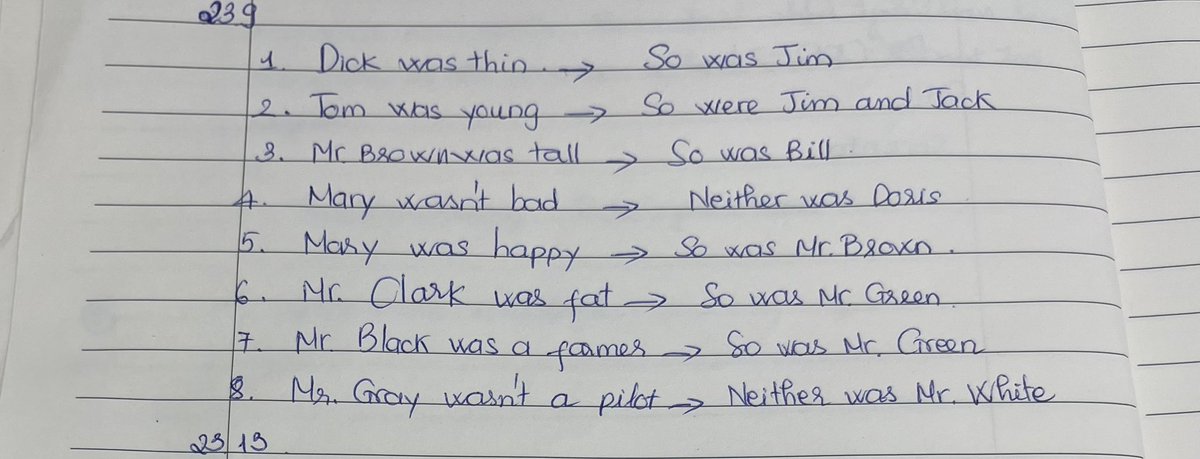 239
1. Dick was thin. → So was Jim
2. Tom was young → So were Jim and Jack
3. Mr. Brown was tall → So was Bill.
4. Mary wasn't bad → Neither was Doris
5. Mary was happy → So was Mr. Brown.
6. Mr. Clark was fat → So was Mr. Green.
7. Mr. Black was a farmer → So was Mr. Green
8. Mr. Gray wasn't a pilot → Neither was Mr. White
23 13